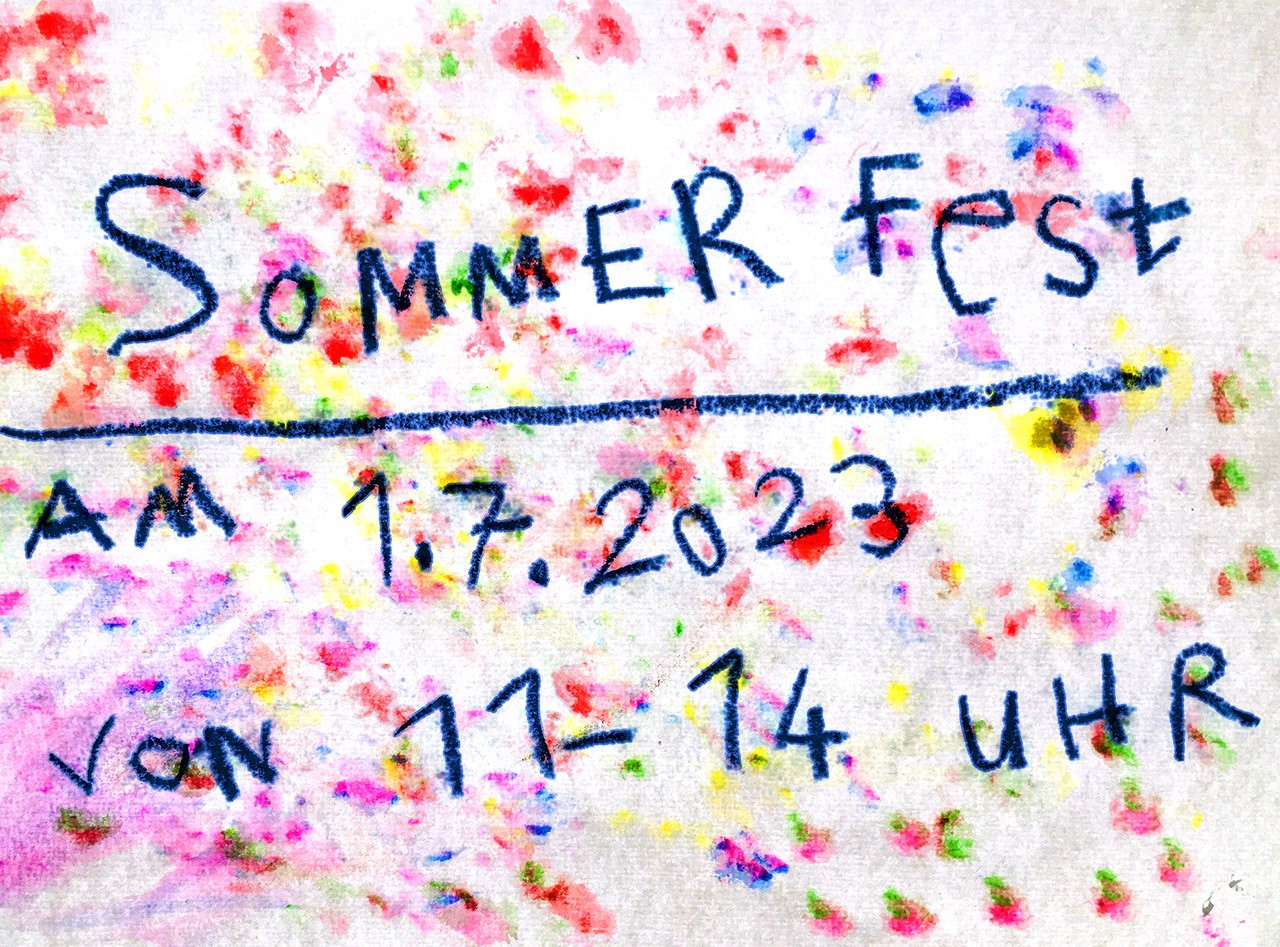 SOMMER Fest
AM 1.7.2023
VON 11-14 UHR